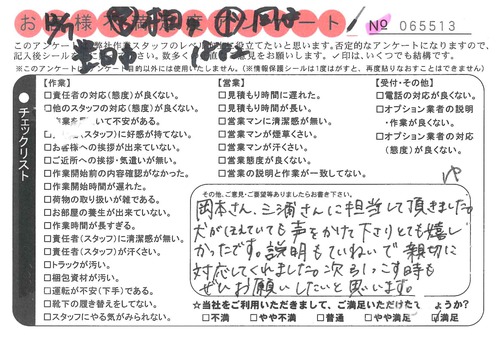 お 様 不満 度 アンケート № 065513
このアンケートは弊社作業スタッフのレベル 役立てたいと思います。否定的なアンケートになりますので、
記入後シール 数多く 意見をお願いします。✓印は、いくつでも結構です。
※このアンケートは アンケート目的以外には使用いたしません。(※情報保護シールは1度はがすと、再度貼りなおすことはできません)
チェックリスト
【作業】
□責任者の対応(態度)が良くない。
□他のスタッフの対応(態度)が良くない。
不安がある。
(スタッフ)に好感が持てない。
□お客様への挨拶が出来ていない。
□ご近所への挨拶・気遣いが無い。
□作業開始前の内容確認がなかった。
□作業開始時間が遅れた。
□荷物の取り扱いが雑である。
□お部屋の養生が出来ていない。
□作業時間が長すぎる。
□責任者(スタッフ)に清潔感が無い。
□責任者(スタッフ)が汗くさい。
□トラックが汚い。
□梱包資材が汚い。
□運転が不安(下手)である。
□靴下の履き替えをしてない。
□スタッフにやる気がみられない。
【営業】
□見積もり時間に遅れた。
□見積もり時間が長い。
□営業マンに清潔感が無い。
□営業マンが煙草くさい。
□営業マンが汗くさい。
□営業態度が良くない。
□営業の説明と作業が一致してない。
【受付・その他】
□電話の対応が良くない。
□オプション業者の説明
・作業が良くない。
□オプション業者の対応
(態度)が良くない。
その他、ご意見・ご要望等ありましたらお書き下さい。
岡本さん、三浦さんに担当して頂きました。
犬がほえていても声をかけて下さりとても嬉し
かったです。説明もていねいで親切に
対応してくれました。次引っこす時も
ぜひお願いしたいと思います。
☆当社をご利用いただきまして、ご満足いただけた ょうか?
□不満 □やや不満 □普通 □やや満足 ☑満足